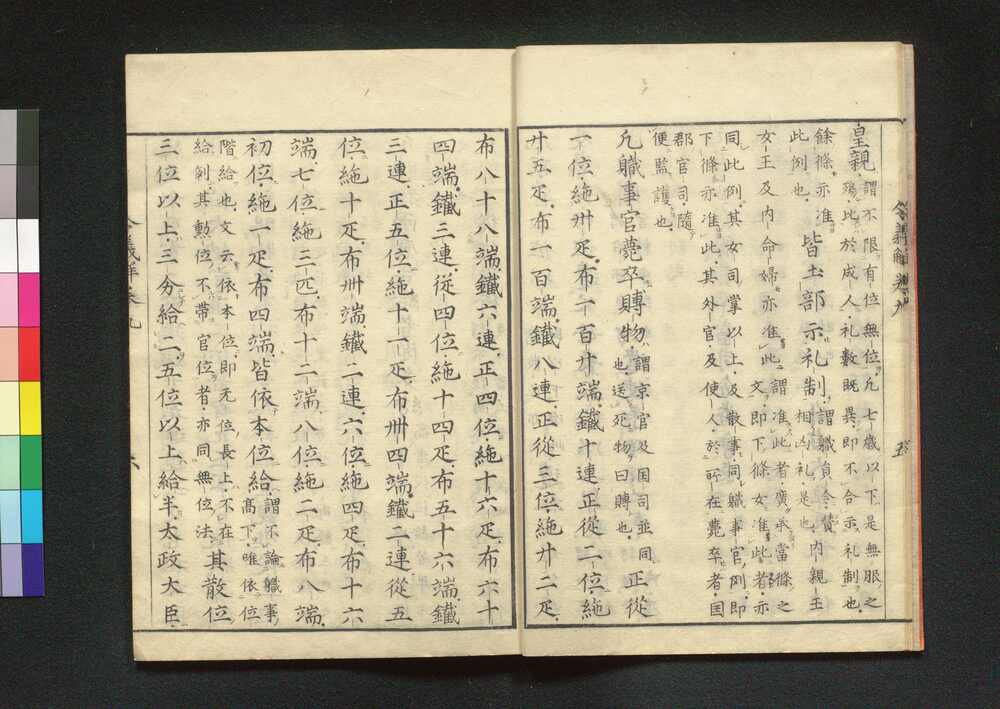 令義解 巻九 五
皇親謂不限有位無位凡七歳以下是無服之
殤比於成人礼数既異即不合示礼制也
餘條亦准
此例也皆土部示礼制謂職員令賛
相凶礼是也内親王
女王及内命婦亦准此謂准此者廣承當條之
文即下條女准此者亦
同此例其女司掌以上及散事同職事官列即
下條亦准此其外官及使人於所在薨卒者国
郡官司隨
便監護也
凡職事官薨卒賻物謂京官及国司並同
也送死物曰賻也正從
一位絁卅疋布一百廿端鐵十連正從二位絁
廿五疋布一百端鐵八連正從三位絁廿二疋
布八十八端鐵六連正四位絁十六疋布六十
四端鐵三連從四位絁十四疋布五十六端鐵
三連正五位絁十一疋布卌四端鐵二連從五
位絁十疋布卅端鐵二連六位絁四疋布十六
端七位絁三匹布十二端八位絁二疋布八端
初位絁一疋布四端皆依本位給謂不論職事
髙下唯依位
階給也文云依本位即无位長上不在
給例其勲位不帶官位者亦同無位法其散位
三位以上三分給二五位以上給半太政大臣
令義解巻九 六